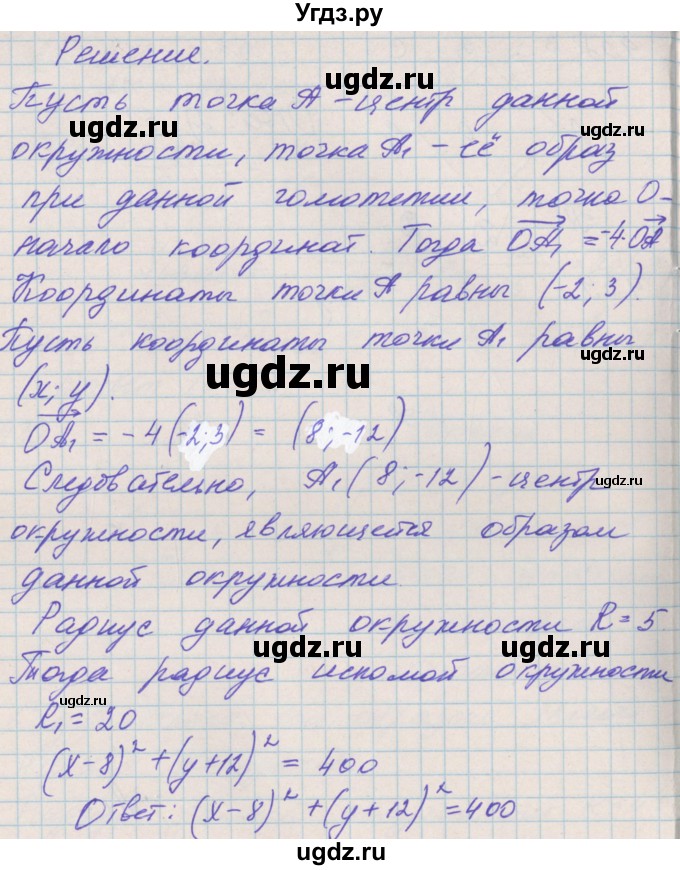 Угдз.ру
Решение.
ugdz.ru
Пусть точка A - центр данной
ugdz.ru
окружности, точка A₁ - её образ
ugdz.ru
при данной гомотетии, точка O-
ugdz.ru
начало координат. Тогда OA₁ = -4OA
Координаты точки A равны (-2; 3).
Пусть координаты точки A₁ равны
ugdz.ru
(x; y).
OA₁ = -4(-2;3) = (8;-12)
ugdz.ru
Следовательно, A₁(8;-12) - центр
ugdz.ru
окружности, являющейся образом
данной окружности.
Радиус данной окружности R=5
ugdz.ru
Тогда радиус искомой окружности
ugdz.ru
R₁=20
(x-8)² + (y+12)² = 400
ugdz.ru
Ответ: (x-8)² + (y+12)² = 400
ugdz.ru